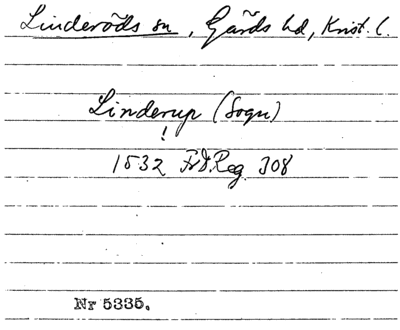 Linderöds sn, Gärds hd, Krist. l.
Linderup (Sogn)
!
1532 Fr.I.Reg. 308
Nr 5335.